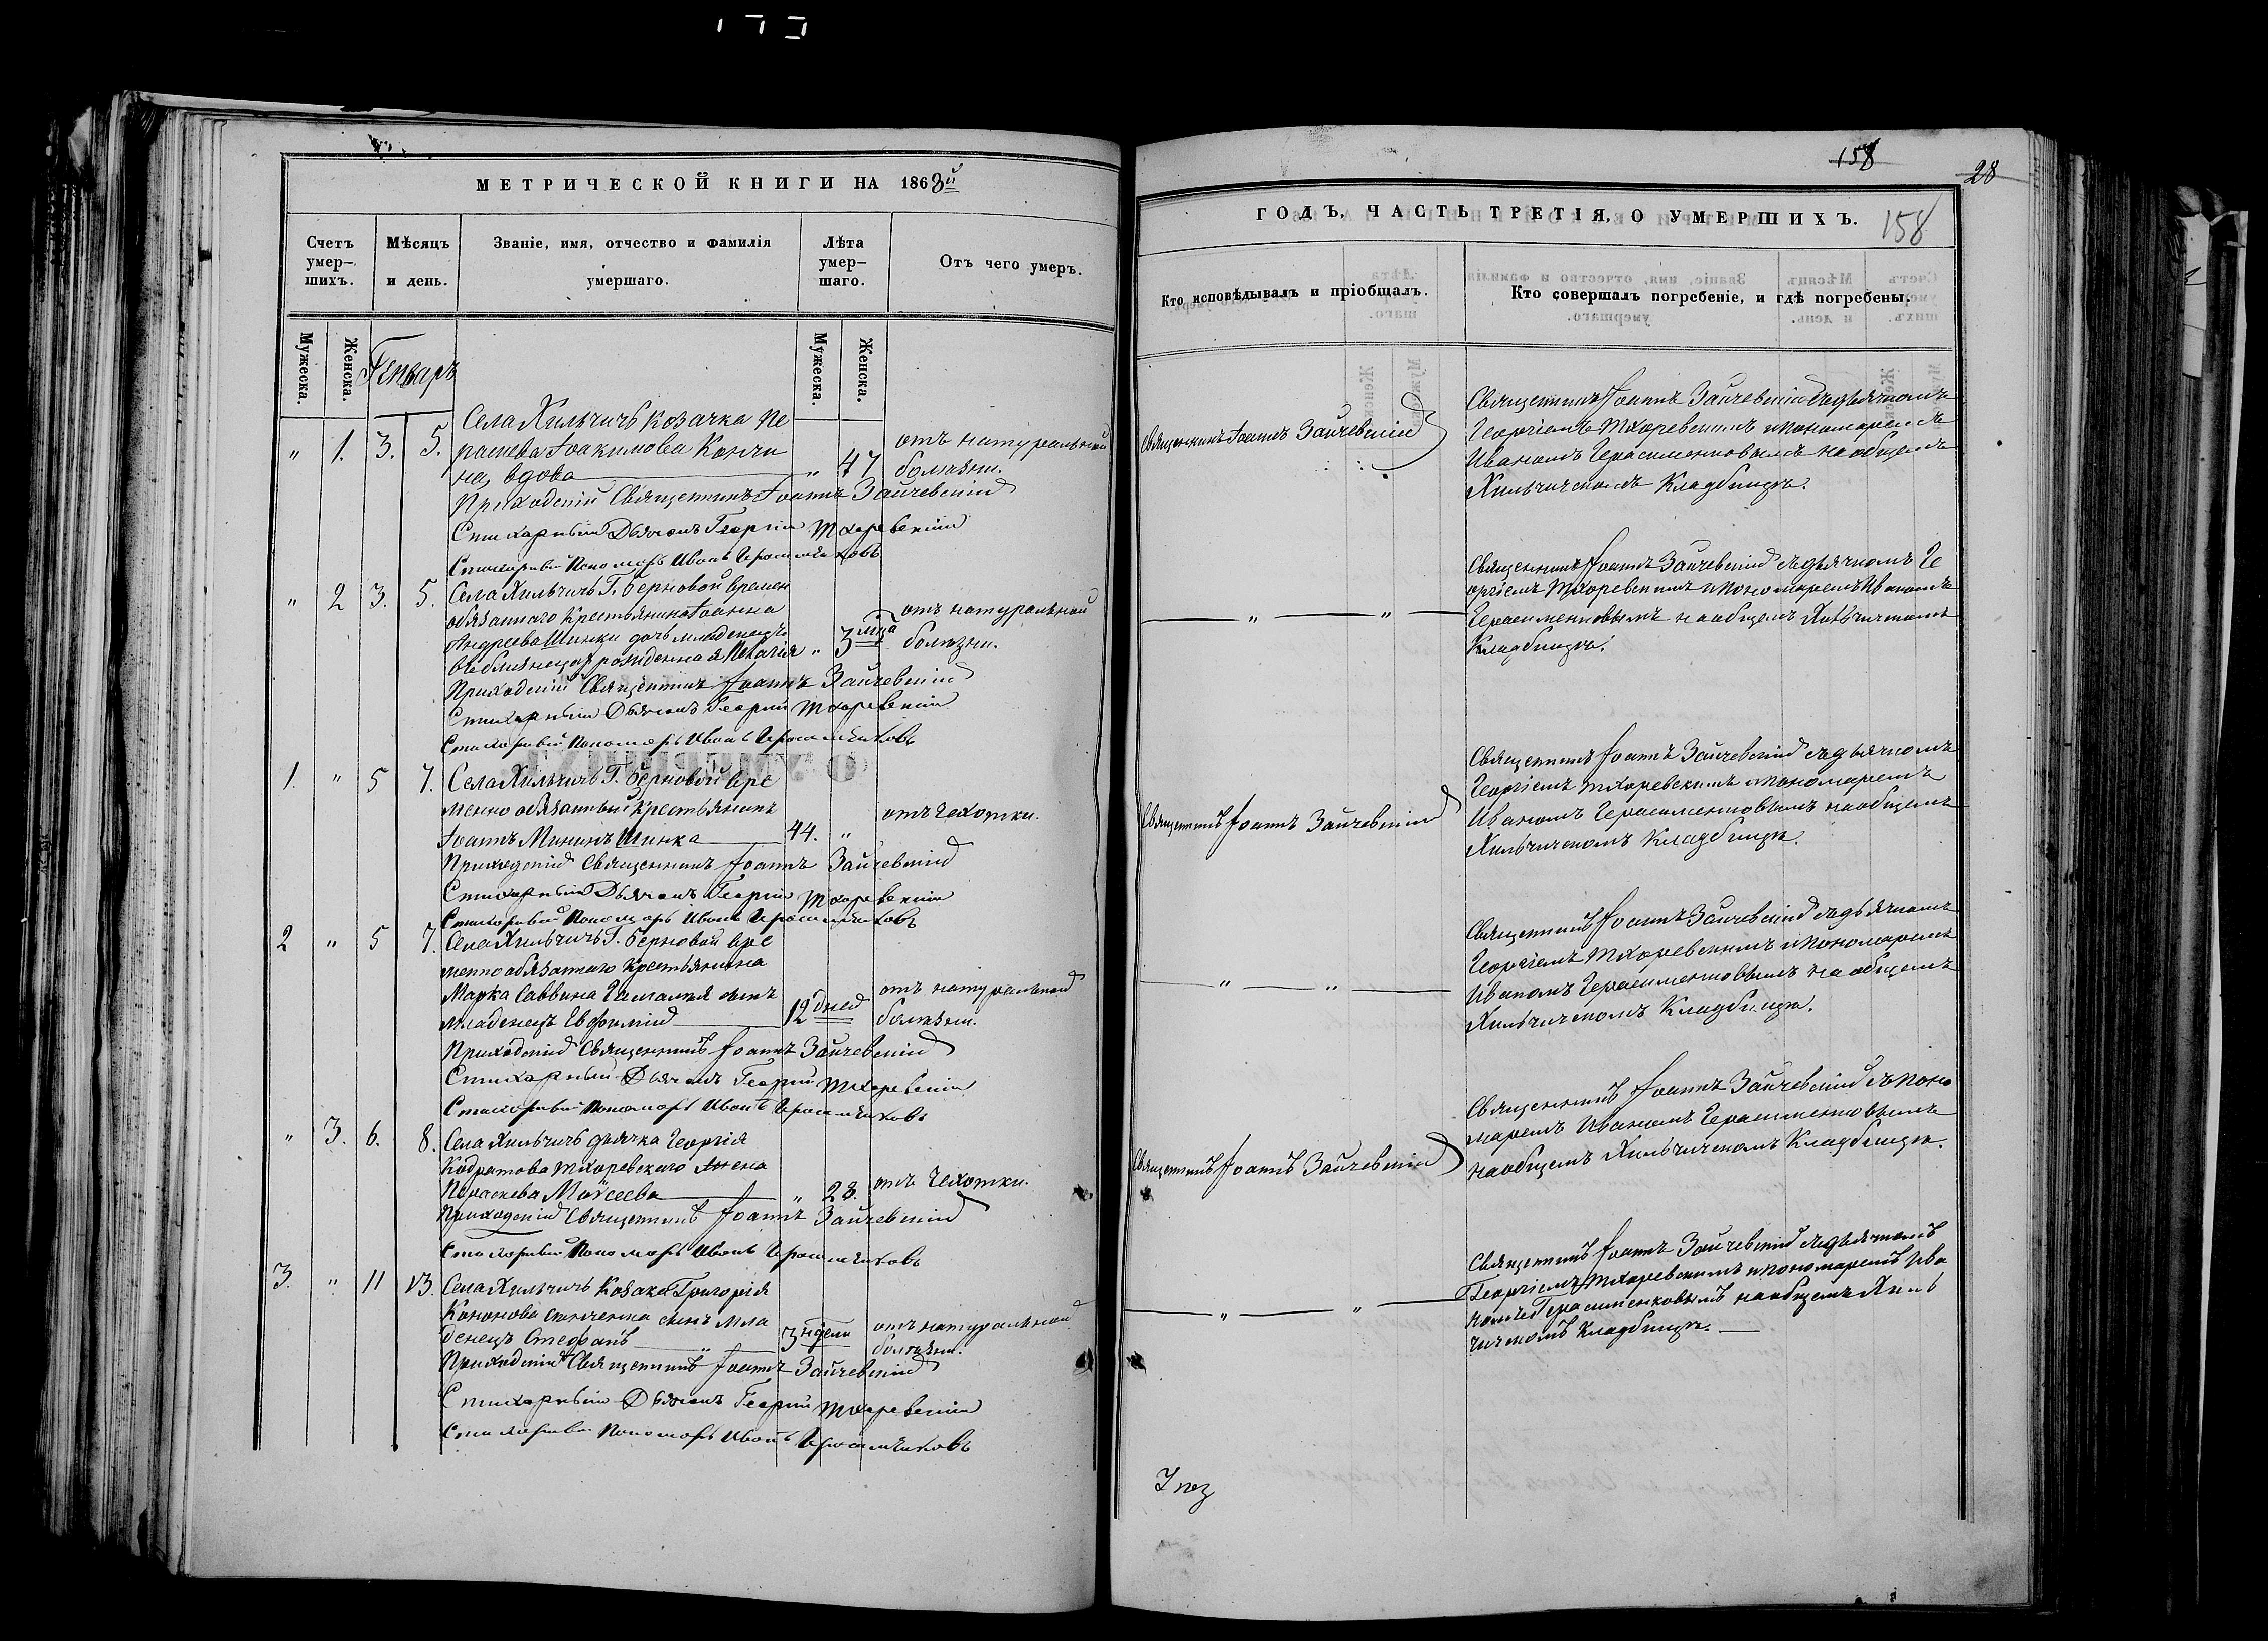 МЕТРИЧЕСКОЙ КНИГИ НА 1863й
Счетъ умер-шихъ.
Мѣсяцъ и день.
Званіе, имя, отчество и фамилія умершаго.
Лѣта умер-шаго.
Отъ чего умеръ.
Мужеска.
Женска.
Генварь
Мужеска.
Женска.
Села Хильчичь козачка Па
" 1. 3. 5. раскева Іоакимова Кончи отъ натуральной
на, вдова " 47 болѣзни.
Приходскій Священникъ Іоаннъ Зайчевскій
Стихарный Дьячокъ Георгій Тхоревскій
Стихарный Пономарь Иванъ Герасименковъ
" 2 3. 5. Села Хильчичь Г. Берновой времен
обязаннаго Крестьянина Іоанна отъ натуральной
Андреева Шинки дочь младенецъ " 3 мца болѣзни.
въ близнецахъ рожденная Пелагія
Приходскій Священникъ Іоаннъ Зайчевскій
Стихарный Дьячокъ Георгій Тхоревскій
Стихарный Пономарь Иванъ Герасименковъ
1. " 5 7. Села Хильчичь Г. Берновой вре
менно обязанный Крестьянинъ отъ чахотки.
Іоаннъ Мининъ Шинка 44. "
Приходскій Священникъ Іоаннъ Зайчевскій
Стихарный Дьячокъ Георгій Тхоревскій
Стихарный Пономарь Иванъ Герасименковъ
2 " 5 7. Села Хильчичь Г. Берновой вре
менно обязаннаго Крестьянина
Марка Саввина сынъ отъ натуральной
младенецъ Евфимій 12 дней болѣзни.
Приходскій Священникъ Іоаннъ Зайчевскій
Стихарный Дьячокъ Георгій Тхоревскій
Стихарный Пономарь Иванъ Герасименковъ
" 3. 6. 8. Села Хильчичь дьячка Георгія
Кодратова Тхоревскаго жена
Параскева Моѵсеева " 28. отъ чахотки.
Приходскій Священникъ Іоаннъ Зайчевскій
Стихарный Пономарь Иванъ Герасименковъ
3. " 11 13. Села Хильчичь Козака Григорія
Кононова сынъ мла отъ натуральной
денецъ Стефанъ 3 недели болѣзни.
Приходскій Священникъ Іоаннъ Зайчевскій
Стихарный Дьячокъ Георгій Тхоревскій
Стихарный Пономарь Иванъ Герасименковъ
158
28
ГОДЪ, ЧАСТЬ ТРЕТІЯ, О УМЕРШИХЪ. 158
Кто исповѣдывалъ и пріобщалъ.
Кто совершалъ погребеніе, и гдѣ погребены.
Священникъ Іоаннъ Зайчевскій
Священникъ Іоаннъ Зайчевскій съ дьячкомъ
Георгіемъ Тхоревскимъ и пономаремъ
Иваномъ Герасименковымъ на общемъ
Хильчичскомъ Кладбищѣ.
" "
Священникъ Іоаннъ Зайчевскій съ дьячкомъ Ге
оргіемъ Тхоревскимъ и пономаремъ Иваномъ
Герасименковымъ на общемъ Хильчичскомъ
Кладбищѣ.
Священникъ Іоаннъ Зайчевскій
Священникъ Іоаннъ Зайчевскій съ дьячкомъ
Георгіемъ Тхоревскимъ и пономаремъ
Иваномъ Герасименковымъ на общемъ
Хильчичскомъ Кладбищѣ.
" "
Священникъ Іоаннъ Зайчевскій съ дьячкомъ
Георгіемъ Тхоревскимъ и пономаремъ
Иваномъ Герасименковымъ на общемъ
Хильчичскомъ Кладбищѣ.
Священникъ Іоаннъ Зайчевскій
Священникъ Іоаннъ Зайчевскій съ поно
маремъ Иваномъ Герасименковымъ
на общемъ Хильчичскомъ Кладбищѣ.
" "
Священникъ Іоаннъ Зайчевскій съ дьячкомъ
Георгіемъ Тхоревскимъ и пономаремъ Ива
номъ Герасименковымъ на общемъ Хиль
чичскомъ Кладбищѣ.